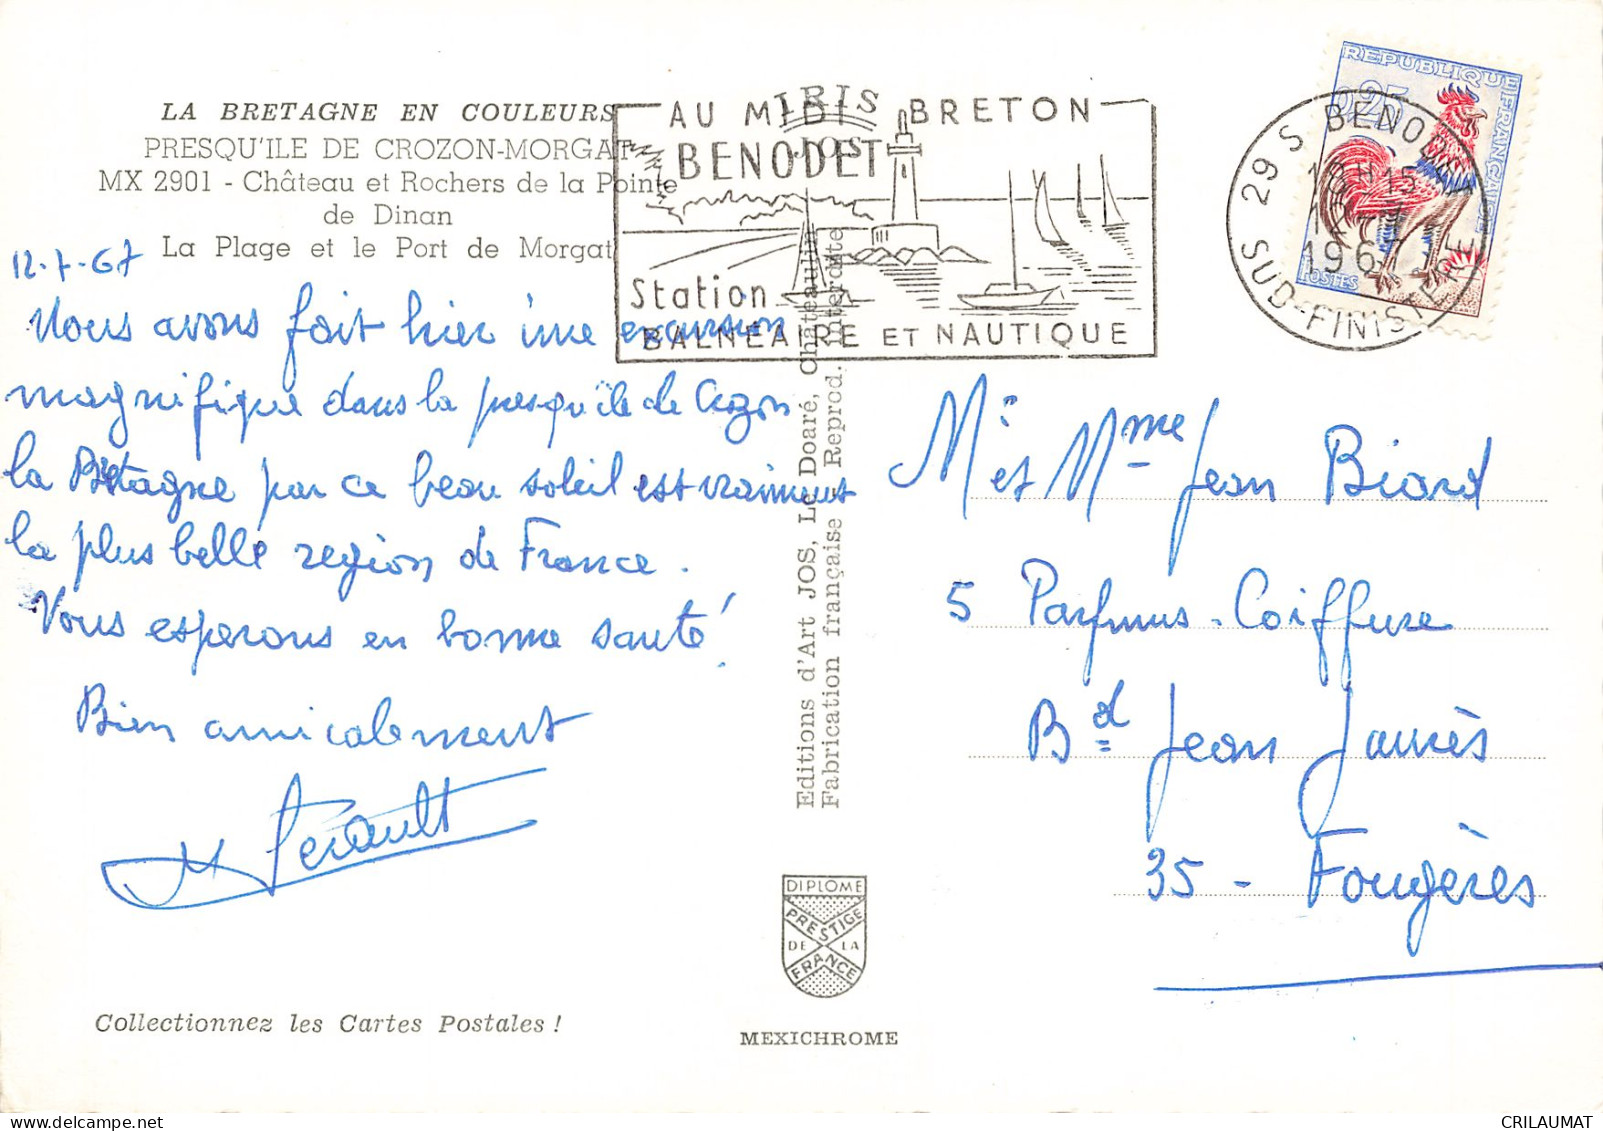 LA BRETAGNE EN COULEURS
PRESQU'ILE DE CROZON-MORGAT
MX 2901 - Château et Rochers de la Pointe
de Dinan
La Plage et le Port de Morgat
12-7-67
Nous avons fait hier une excursion
magnifique dans la presqu'île de Crozon
la Bretagne par ce beau soleil est vraiment
la plus belle region de France.
Vous esperons en bonne santé!
Bien amicalement
Collectionnez les Cartes Postales !
IRIS
JOS
AU MIDI BRETON
BENODET
Station
BALNEAIRE ET NAUTIQUE
Editions d'Art JOS, Le Doaré, Châteaulin
Fabrication française - Reprod. interdite
DIPLOME
PRESTIGE
DE LA
FRANCE
MEXICHROME
REPUBLIQUE FRANÇAISE
0,25
POSTES
29 S BENODET
18H15
1967
SUD-FINISTERE
M et Mme Jean Biard
5 Parfums - Coiffure
Bd Jean Jaurès
35 - Fougères
CRILAUMAT